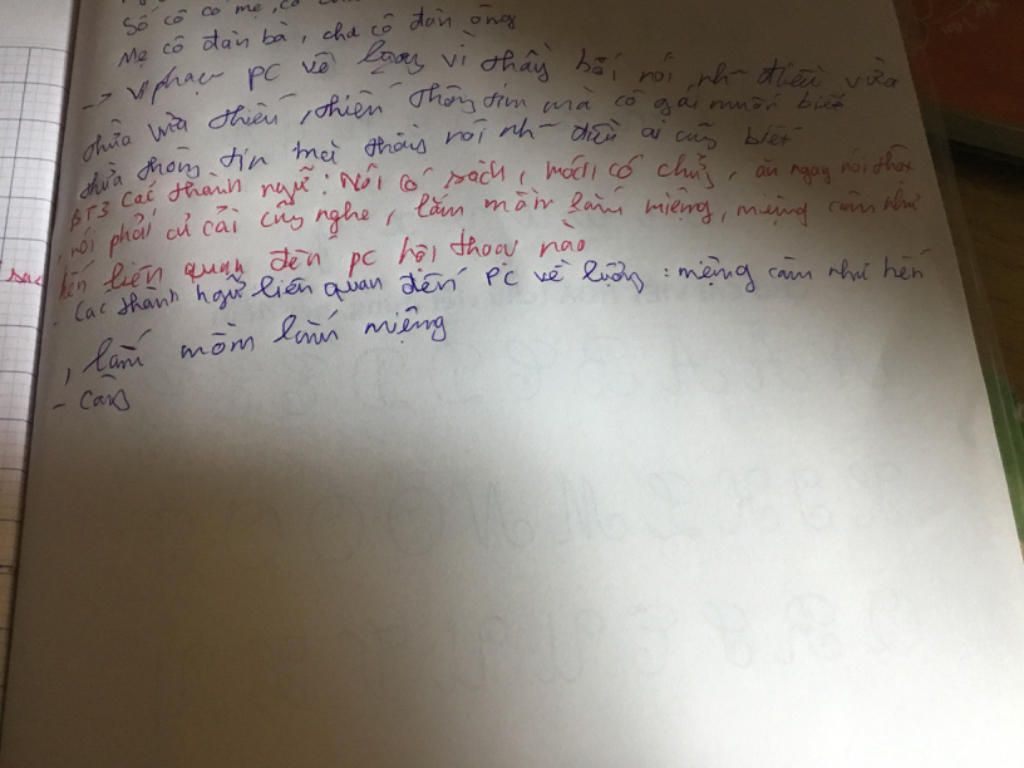 Số cô có mẹ, có cha
Mẹ cô đàn bà, cha cô đàn ông
-> vi phạm PC về lượng vì thầy bói nói nh~ điều vừa
thừa vừa thiếu, thiếu thông tin mà cô gái muốn biết
thừa thông tin mà thầy nói nh~ điều ai cũng biết
BT3 Các thành ngữ: Nói có sách, mách có chứ, ăn ngay nói thật
, nói phải củ cải cũng nghe, lắm mồm lắm miệng, miệng câm như
hến liên quan đến pc hội thoại nào
- Các thành ngữ liên quan đến PC về lượng: miệng câm như hến
, lắm mồm lắm miệng
- Các